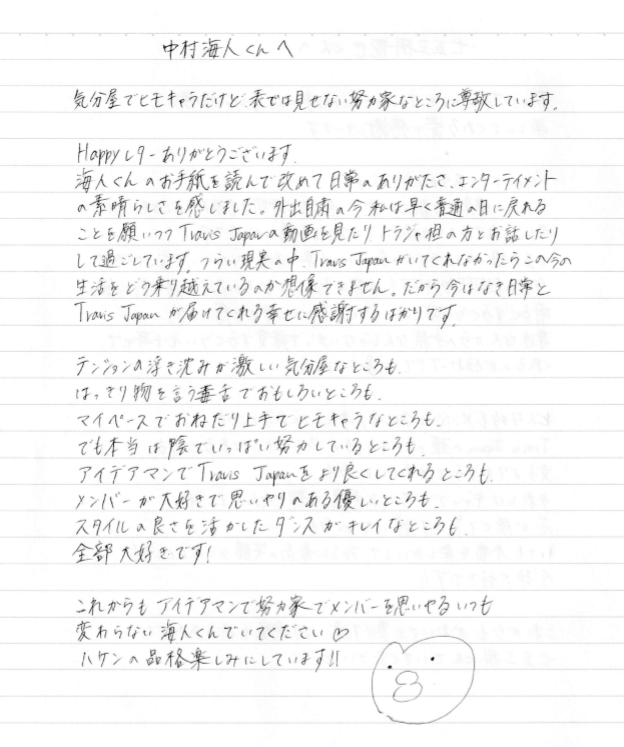 中村海人くんへ
気分屋でヒモキャラだけど、表では見せない努力家なところに尊敬しています。
Happyレターありがとうございます。
海人くんのお手紙を読んで改めて日常のありがたさ、エンターテイメント
の素晴らしさを感じました。外出自粛の今私は早く普通の日に戻れる
ことを願いつつ Travis Japanの動画を見たりトラジャ担の方とお話したり
して過ごしています。つらい現実の中、Travis Japanがいてくれなかったらこの今の
生活をどう乗り越えているのか想像できません。だから今はなき日常と
Travis Japan が届けてくれる幸せに感謝するばかりです。
テンションの浮き沈みが激しい気分屋なところも、
はっきり物を言う毒舌でおもしろいところも、
マイペースでおねだり上手でヒモキャラなところも、
でも本当は陰でいっぱい努力しているところも、
アイデアマンでTravis Japanをより良くしてくれるところも、
メンバーが大好きで思いやりのある優しいところも、
スタイルの良さを活かしたダンスがキレイなところも、
全部大好きです!
これからもアイデアマンで努力家でメンバーを思いやるいつも
変わらない海人くんでいてください♡
ハケンの品格楽しみにしています!!